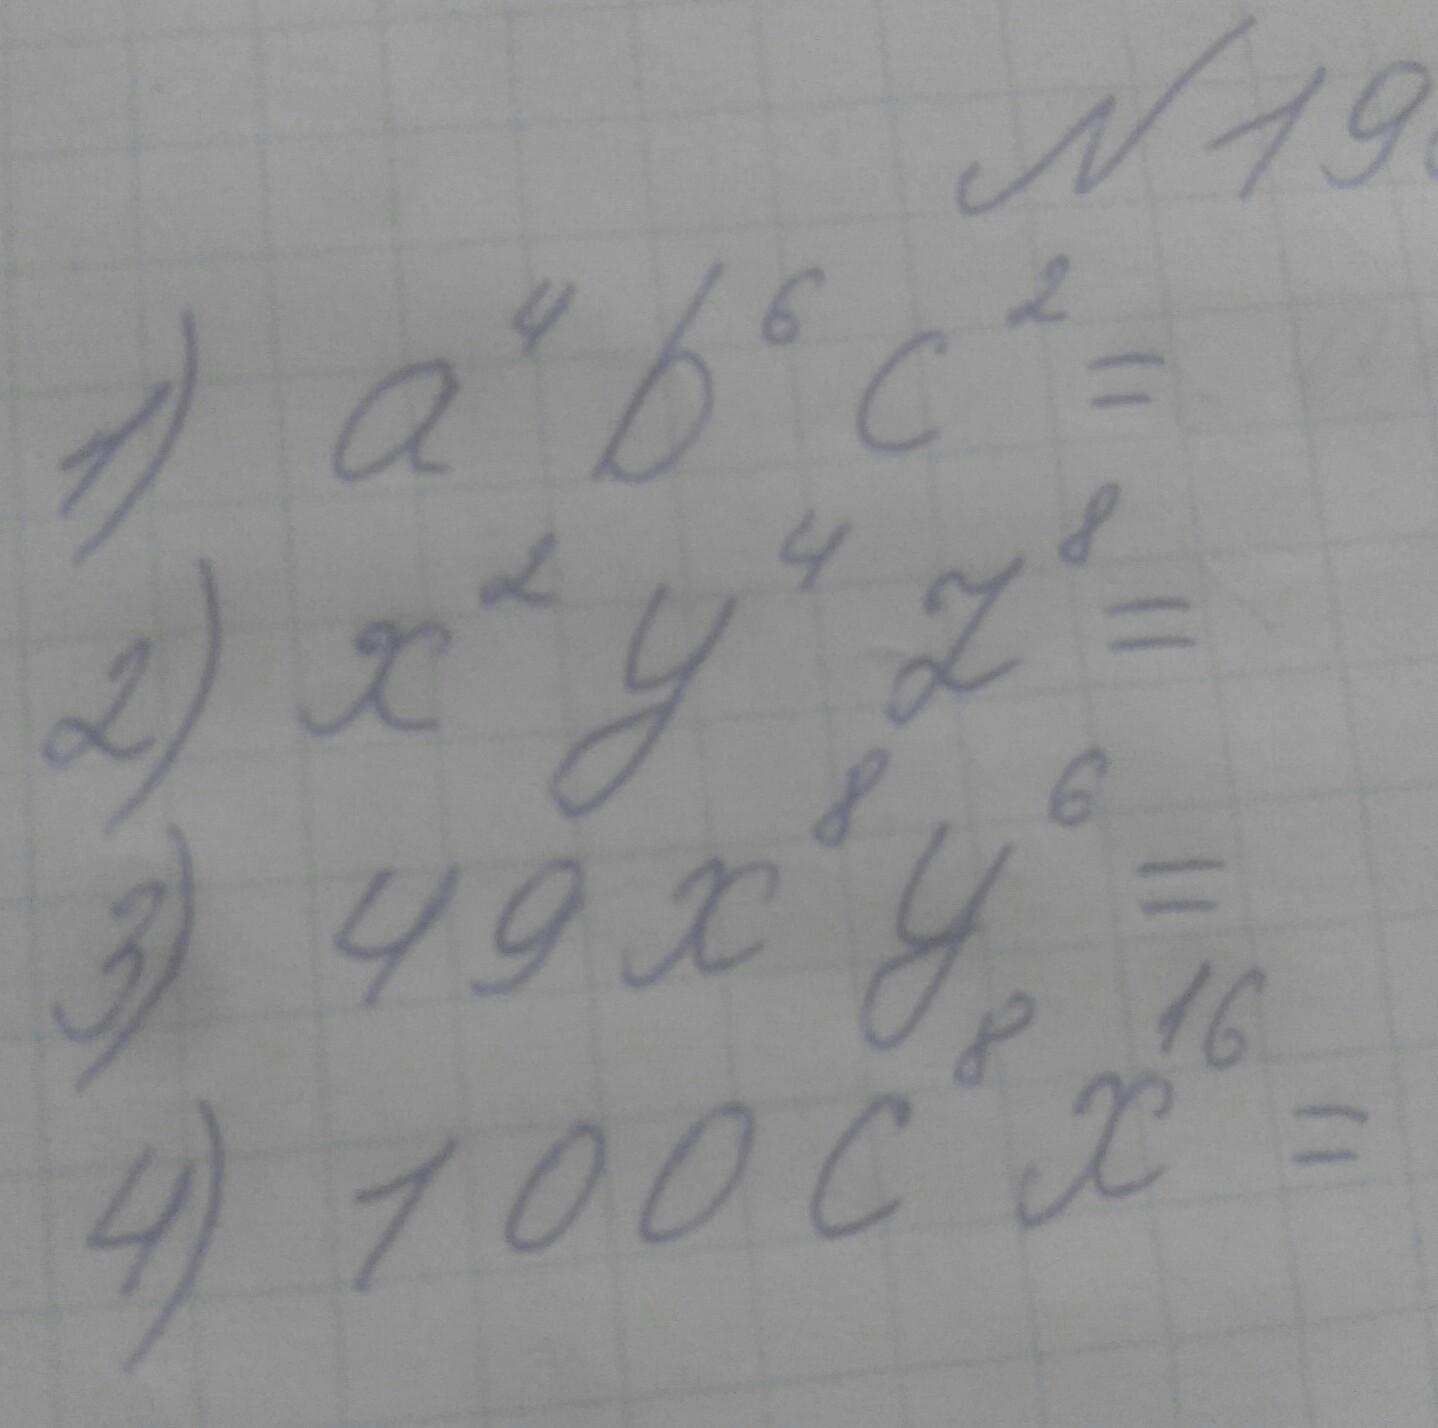 N 19
1) a⁴ b⁶ c² =
2) x² y⁴ z⁸ =
3) 49x⁸ y⁶ =
4) 100c⁸ x¹⁶ =